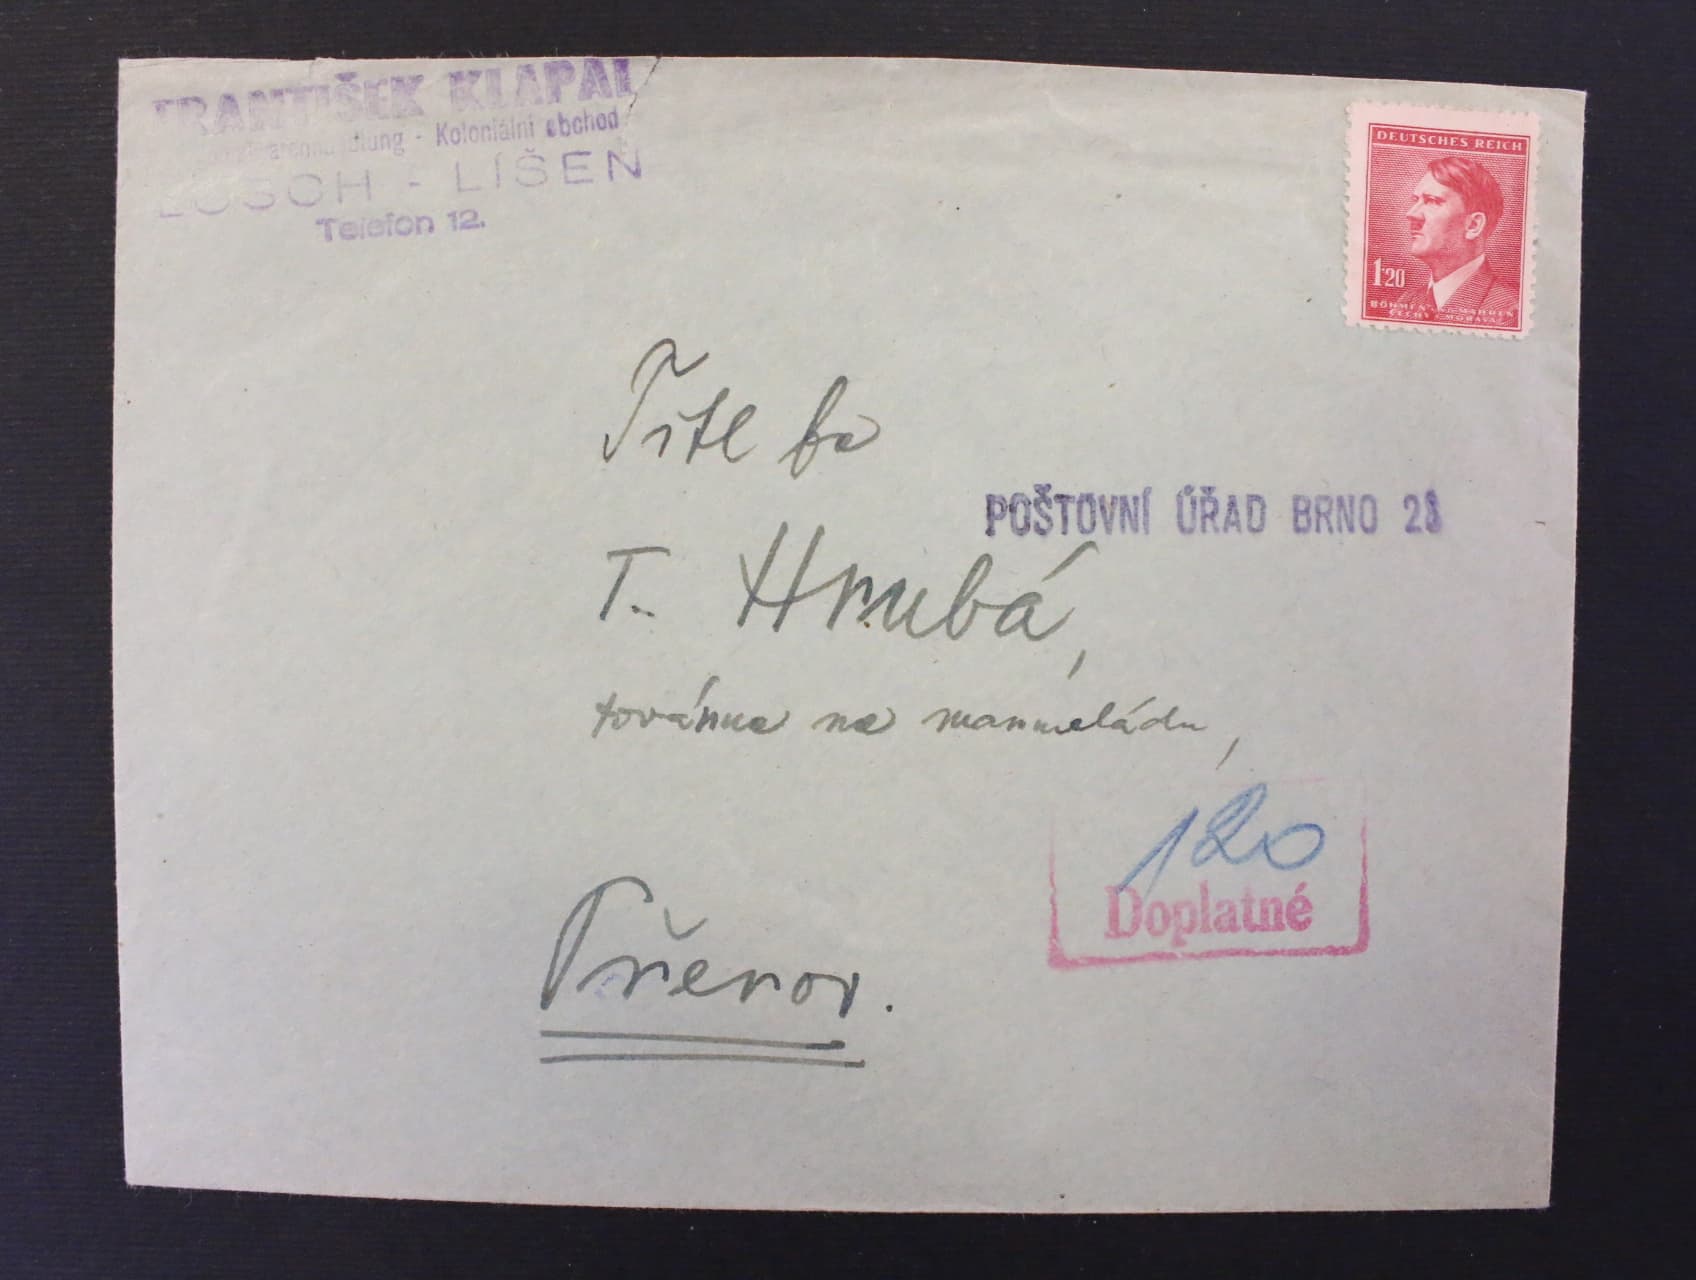 FRANTIŠEK KLAPAL
Koloniální obchod
LÖSCH - LÍŠEŇ
Telefon 12.
DEUTSCHES REICH
1·20
BÖHMEN UND MÄHREN
ČECHY A MORAVA
Titl fa
POŠTOVNÍ ÚŘAD BRNO 28
T. Hrubá,
továrna na marmeládu,
120
Doplatné
Přerov.